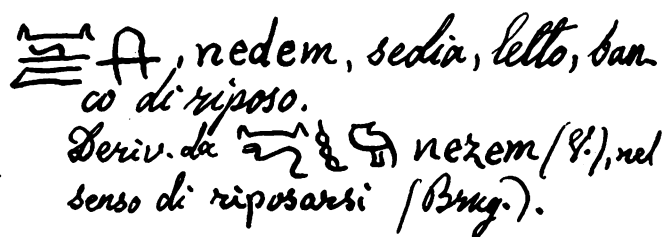 , nedem, sedia, letto, ban
co di riposo.
Deriv. da nezem (V.), nel
senso di riposarsi (Brug.).